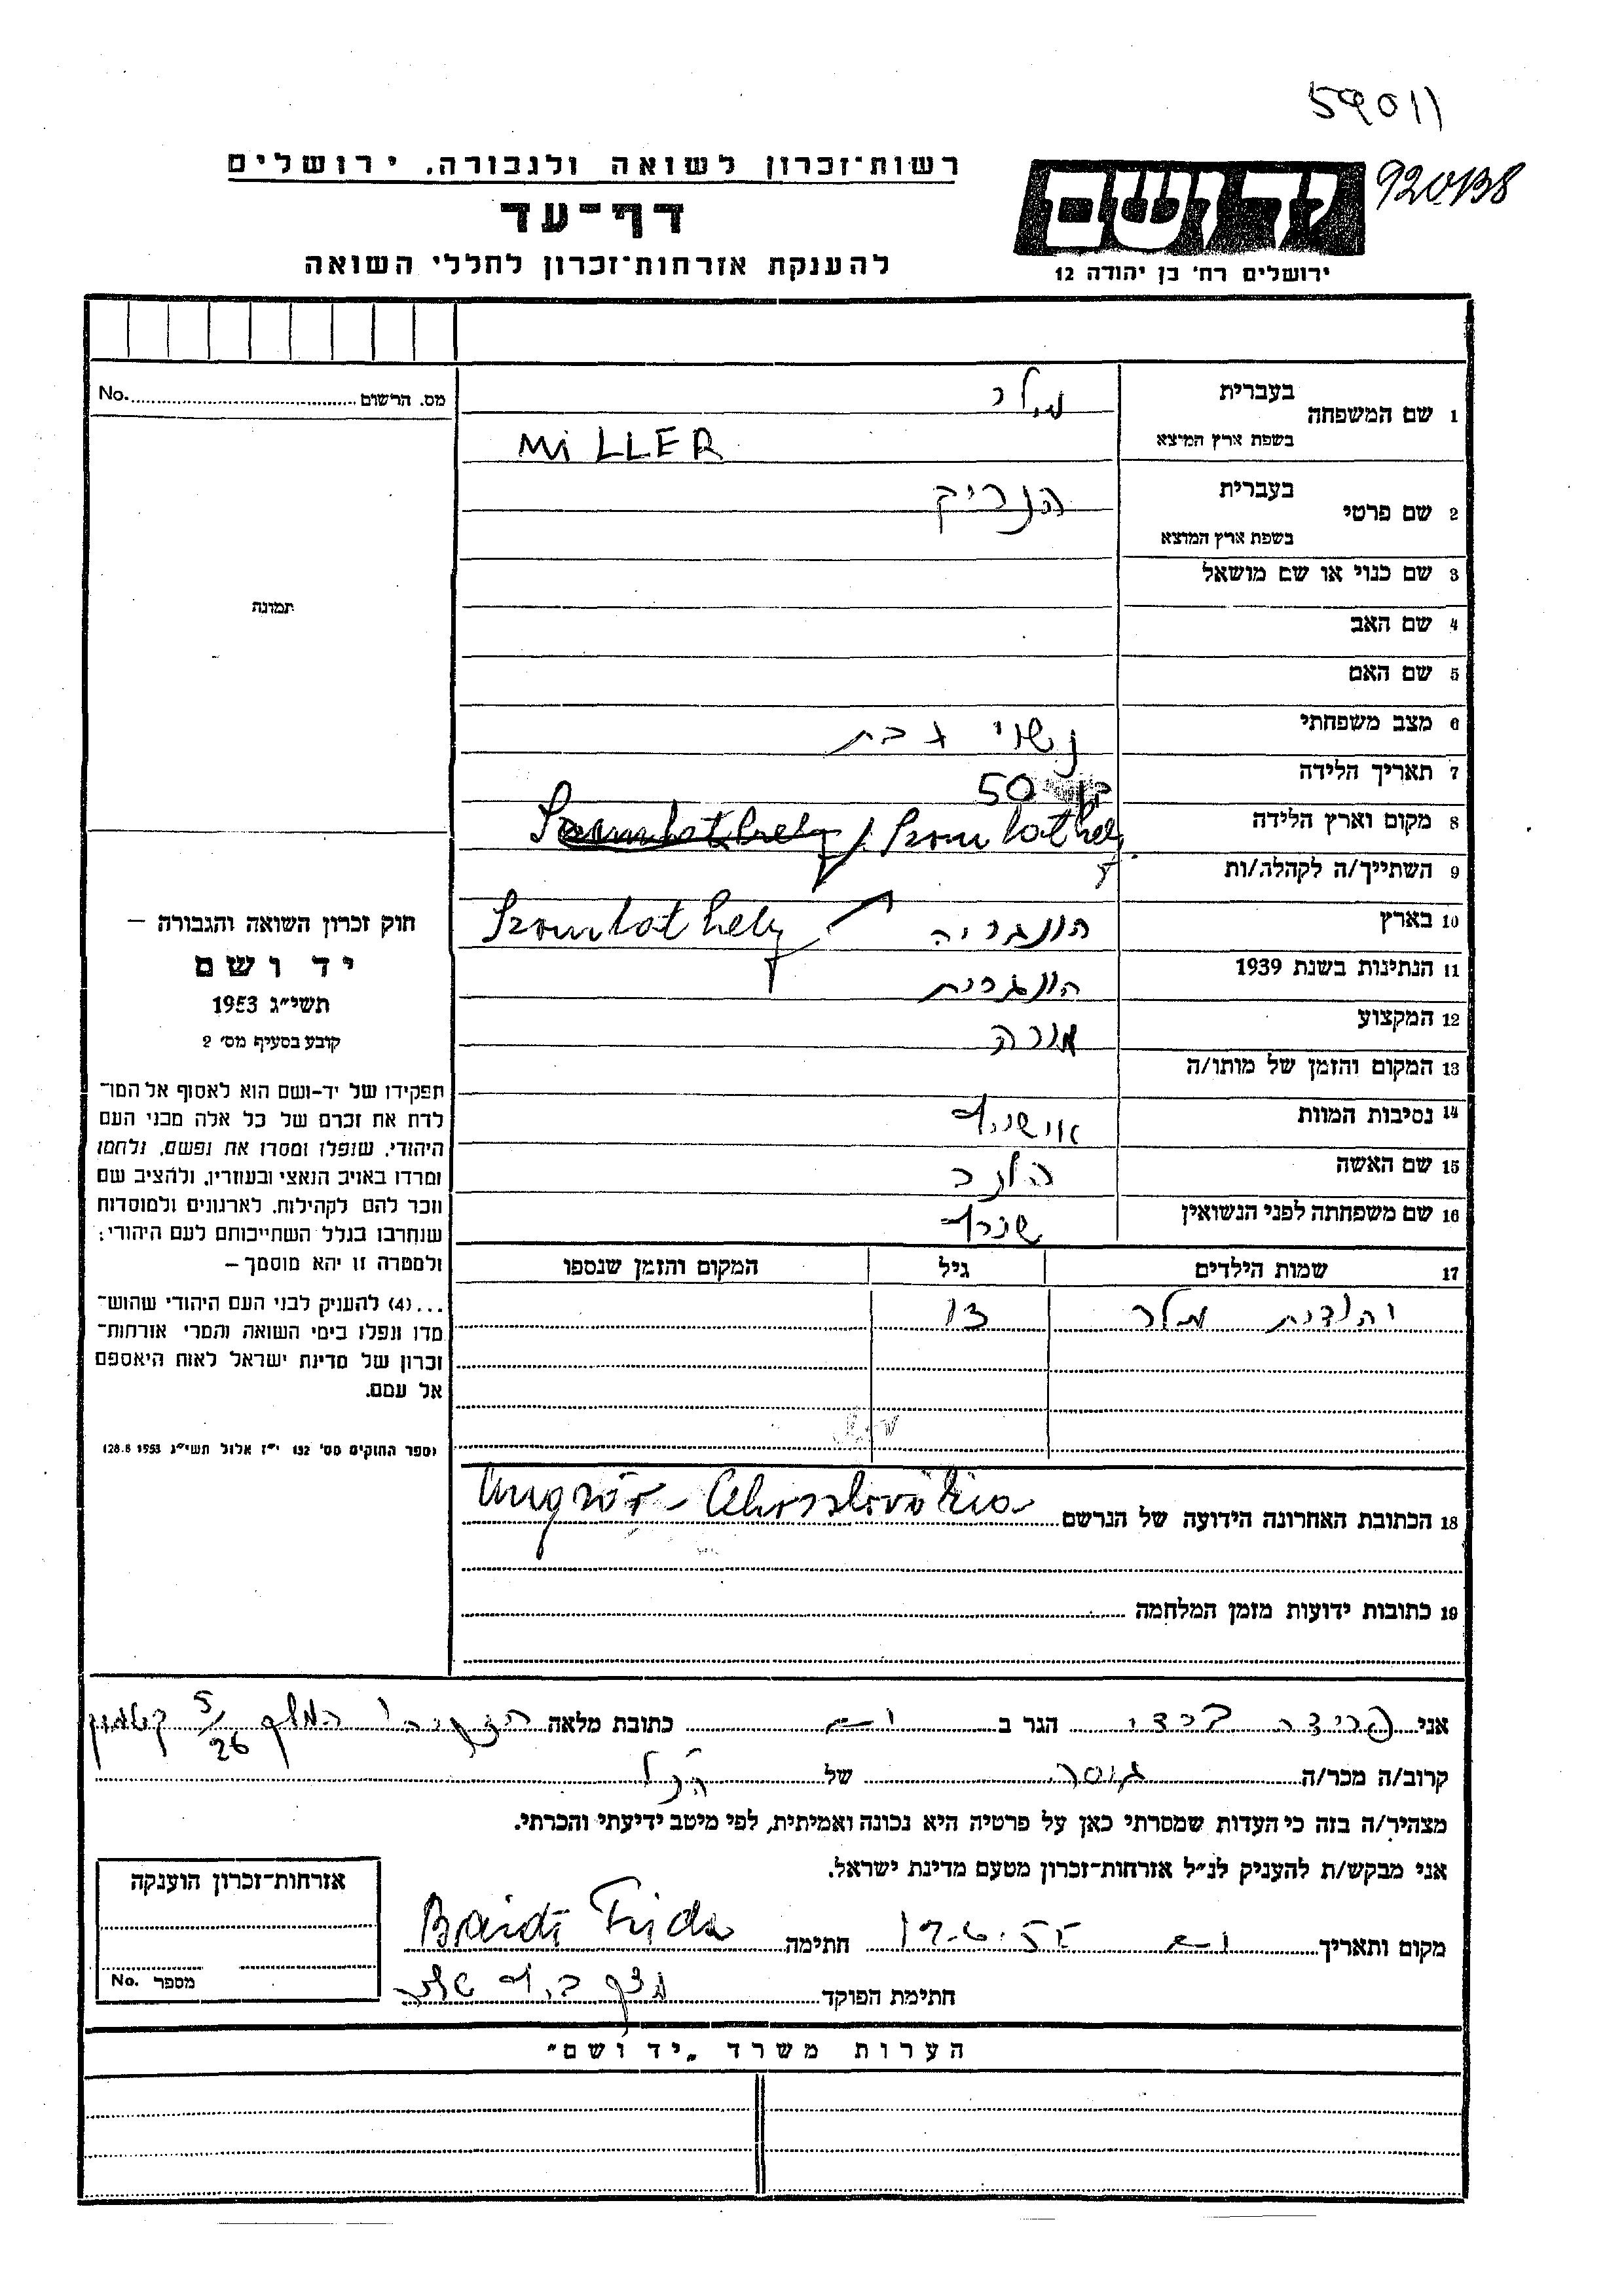 59011
920138
יד ושם
ירושלים רח' בן יהודה 12
רשות־זכרון לשואה ולגבורה. ירושלים
דף־עד
להענקת אזרחות־זכרון לחללי השואה
מס. הרשום No.
1 שם המשפחה בעברית מילר
בשפת ארץ המוצא MiLLER
2 שם פרטי בעברית הנריק
בשפת ארץ המוצא
3 שם כנוי או שם מושאל
4 שם האב
5 שם האם
6 מצב משפחתי נשוי + בת
7 תאריך הלידה בן 50
8 מקום וארץ הלידה Szombathely / Szombathely
9 השתייך/ה לקהלה/ות
10 בארץ הונגריה Szombathely
11 הנתינות בשנת 1939 הונגרית
12 המקצוע מורה
13 המקום והזמן של מותו/ה
14 נסיבות המוות אושויץ
15 שם האשה
16 שם משפחתה לפני הנשואין
17 שמות הילדים גיל המקום והזמן שנספו
יהודית מילר 13
18 הכתובת האחרונה הידועה של הנרשם Ungvár - Cehoszlovákia
19 כתובות ידועות מזמן המלחמה
תמונה
חוק זכרון השואה והגבורה —
יד ושם
תשי"ג 1953
קובע בסעיף מס' 2
תפקידו של יד-ושם הוא לאסוף אל המו־
לדת את זכרם של כל אלה מבני העם
היהודי, שנפלו ומסרו את נפשם, נלחמו
ומרדו באויב הנאצי ובעוזריו, ולהציב שם
וזכר להם לקהילות, לארגונים ולמוסדות
שנחרבו בגלל השתייכותם לעם היהודי:
ולמטרה זו יהא מוסמך —
...(4) להעניק לבני העם היהודי שהוש־
מדו ונפלו בימי השואה והמרי אזרחות־
זכרון של מדינת ישראל לאות היאספם
אל עמם.
(ספר החוקים מס' 132 י"ז אלול תשי"ג 28.8.1953)
אני פרידה ברדי הגר ב כתובת מלאה חזקיהו המלך 5/26 קטמון
קרוב/ה מכר/ה גיסה של הנ"ל
מצהיר/ה בזה כי העדות שמסרתי כאן על פרטיה היא נכונה ואמיתית, לפי מיטב ידיעתי והכרתי.
אני מבקש/ת להעניק לנ"ל אזרחות־זכרון מטעם מדינת ישראל.
מקום ותאריך 19.6.55 חתימה Brárdi Frida
חתימת הפוקד
אזרחות־זכרון הוענקה
מספר No.
הערות משרד „יד ושם"